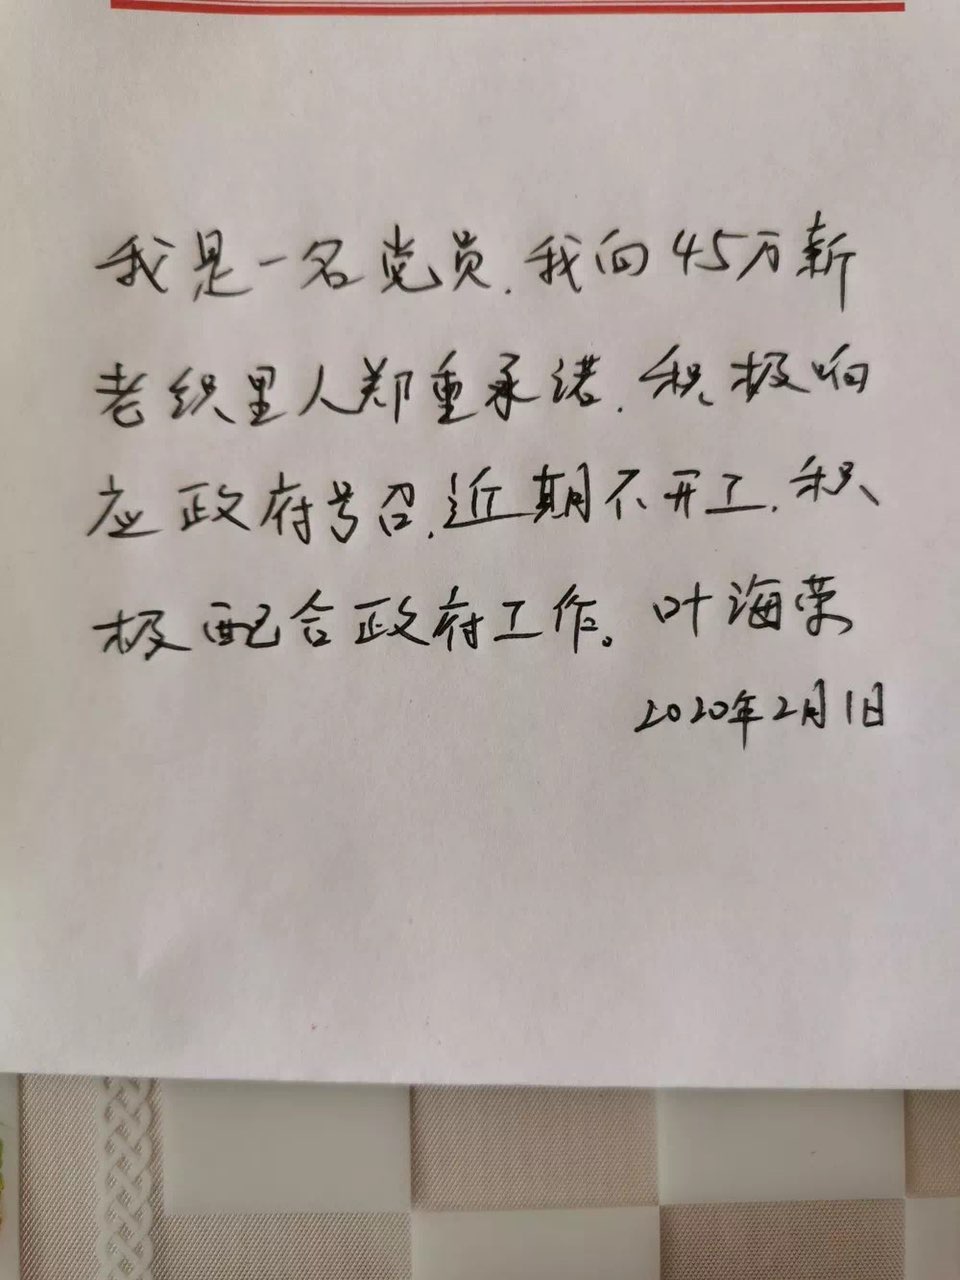 我是一名党员.我向45万新
老织里人郑重承诺.积极响
应政府号召.近期不开工.积
极配合政府工作。叶海荣
2020年2月1日